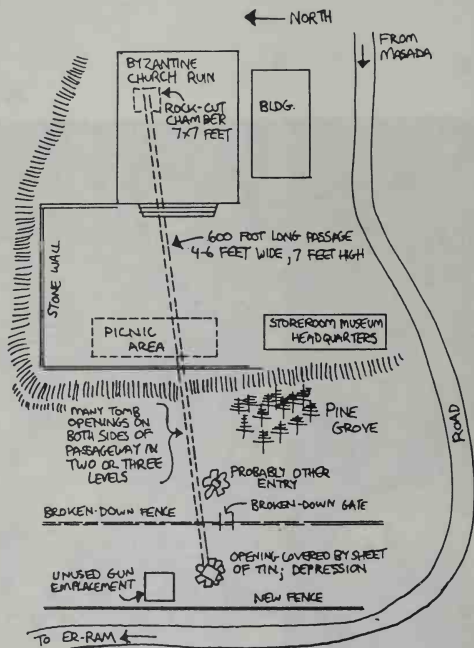 NORTH
FROM
MASADA
BYZANTINE
CHURCH RUIN
ROCK-CUT
CHAMBER
7x7 FEET
BLDG.
600 FOOT LONG PASSAGE
4-6 FEET WIDE, 7 FEET HIGH
STONE WALL
PICNIC
AREA
STOREROOM MUSEUM
HEADQUARTERS
MANY TOMB
OPENINGS ON
BOTH SIDES OF
PASSAGEWAY IN
TWO OR THREE
LEVELS
PINE
GROVE
ROAD
PROBABLY OTHER
ENTRY
BROKEN-DOWN FENCE
BROKEN-DOWN GATE
OPENING COVERED BY SHEET
OF TIN; DEPRESSION
UNUSED GUN
EMPLACEMENT
NEW FENCE
TO ER-RAM